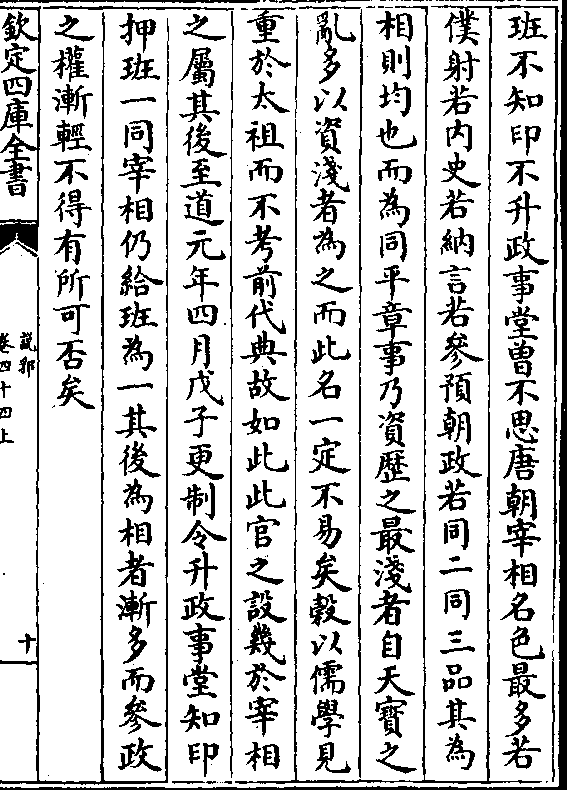 班不知印不升政事堂曾不思唐朝宰相名色最多若
僕射若内史若納言若參預朝政若同二同三品其為
相則均也而為同平章事乃資歴之最淺者自天寶之
亂多以資淺者為之而此名一定不易矣榖以儒學見
重於太祖而不考前代典故如此此官之設幾於宰相
之屬其後至道元年四月戊子更制令升政事堂知印
押班一同宰相仍給班為一其後為相者漸多而參政
之權漸輕不得有所可否矣
欽定四庫全書
說郛
卷四十四上
十